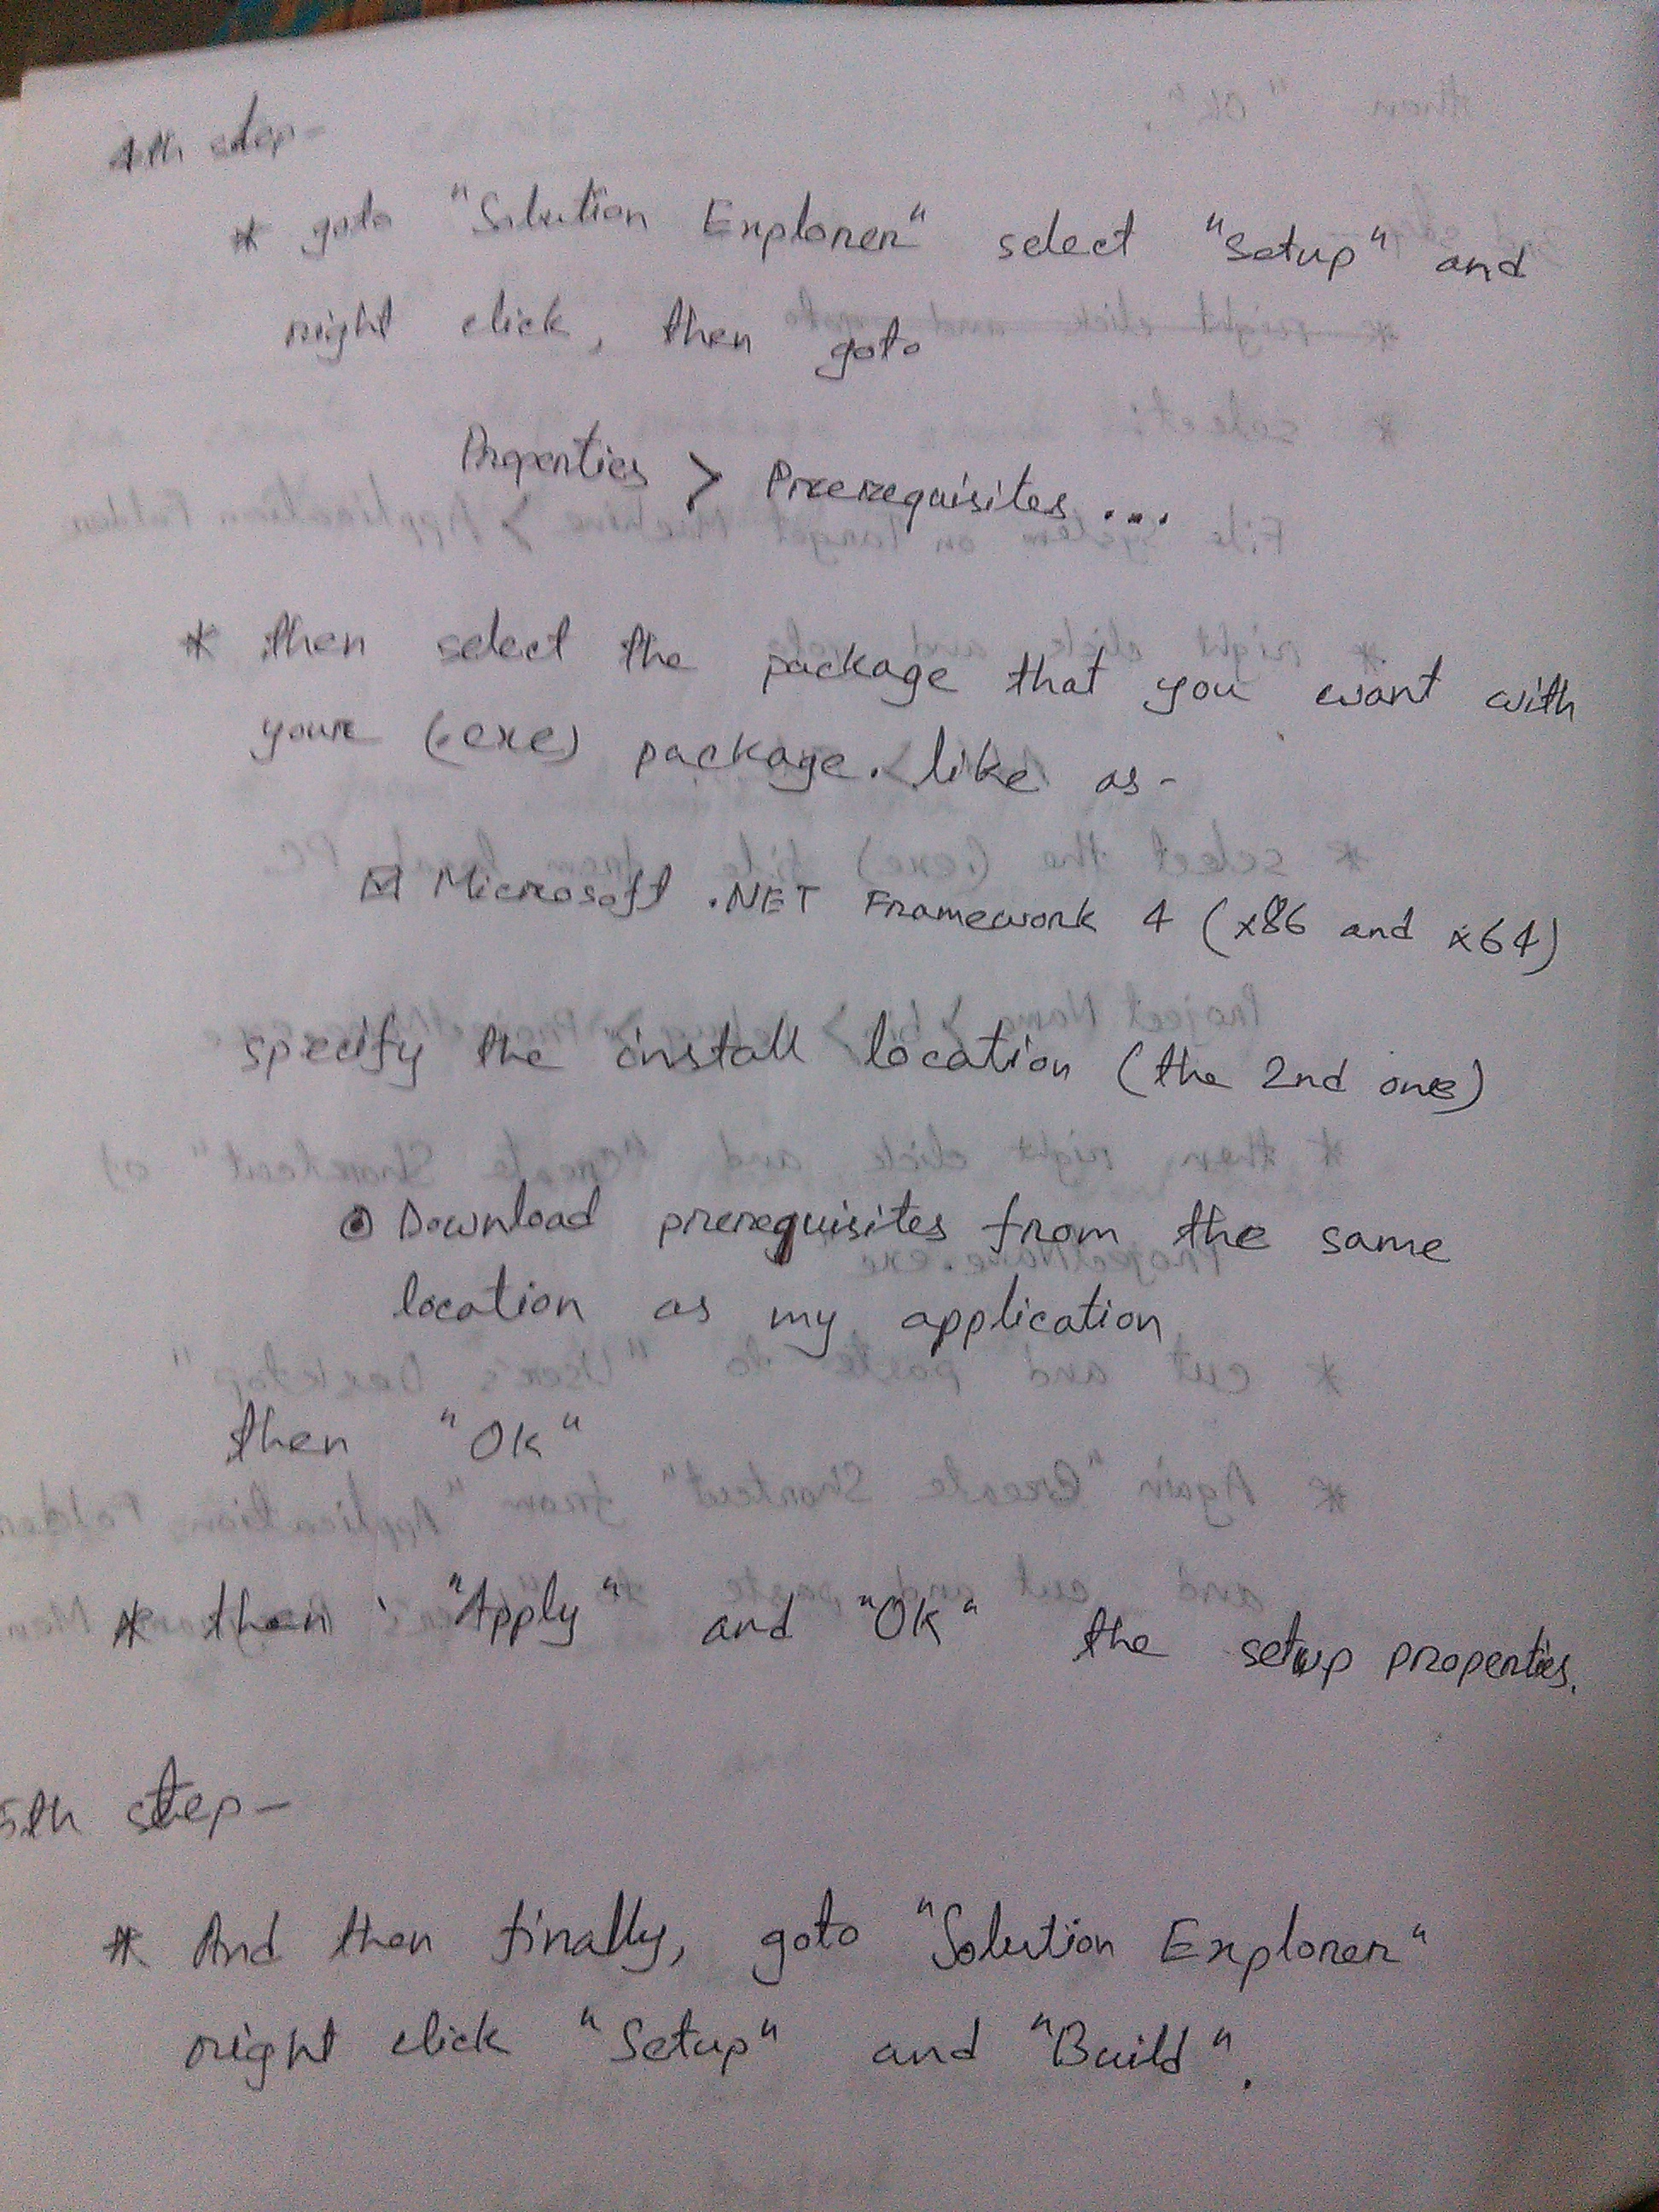 4th step-
* goto "Solution Explorer" select "setup" and
right click, then goto
Properties > Prerequisites ...
* then select the package that you want with
your (.exe) package. like as -
☑ Microsoft .NET Framework 4 (x86 and x64)
specify the install location (the 2nd one)
⦿ Download prerequisites from the same
location as my application
then "OK"
* then "Apply" and "OK" the setup properties.
5th step-
* And then finally, goto "Solution Explorer"
right click "Setup" and "Build".